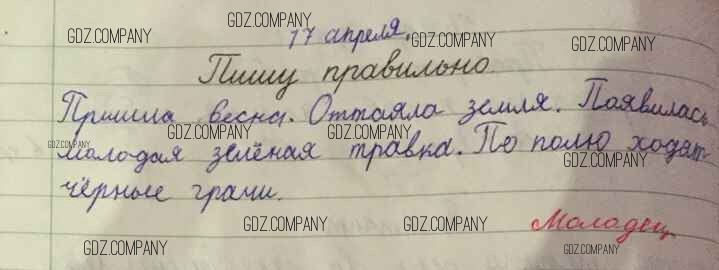 GDZ.COMPANY
GDZ.COMPANY GDZ.COMPANY GDZ.COMPANY
17 апреля.
Пишу правильно.
Пришла весна. Оттаяла земля. Появилась
GDZ.COMPANY GDZ.COMPANY GDZ.COMPANY
молодая зелёная травка. По полю ходят
GDZ.COMPANY
чёрные грачи.
GDZ.COMPANY GDZ.COMPANY
Молодец
GDZ.COMPANY GDZ.COMPANY